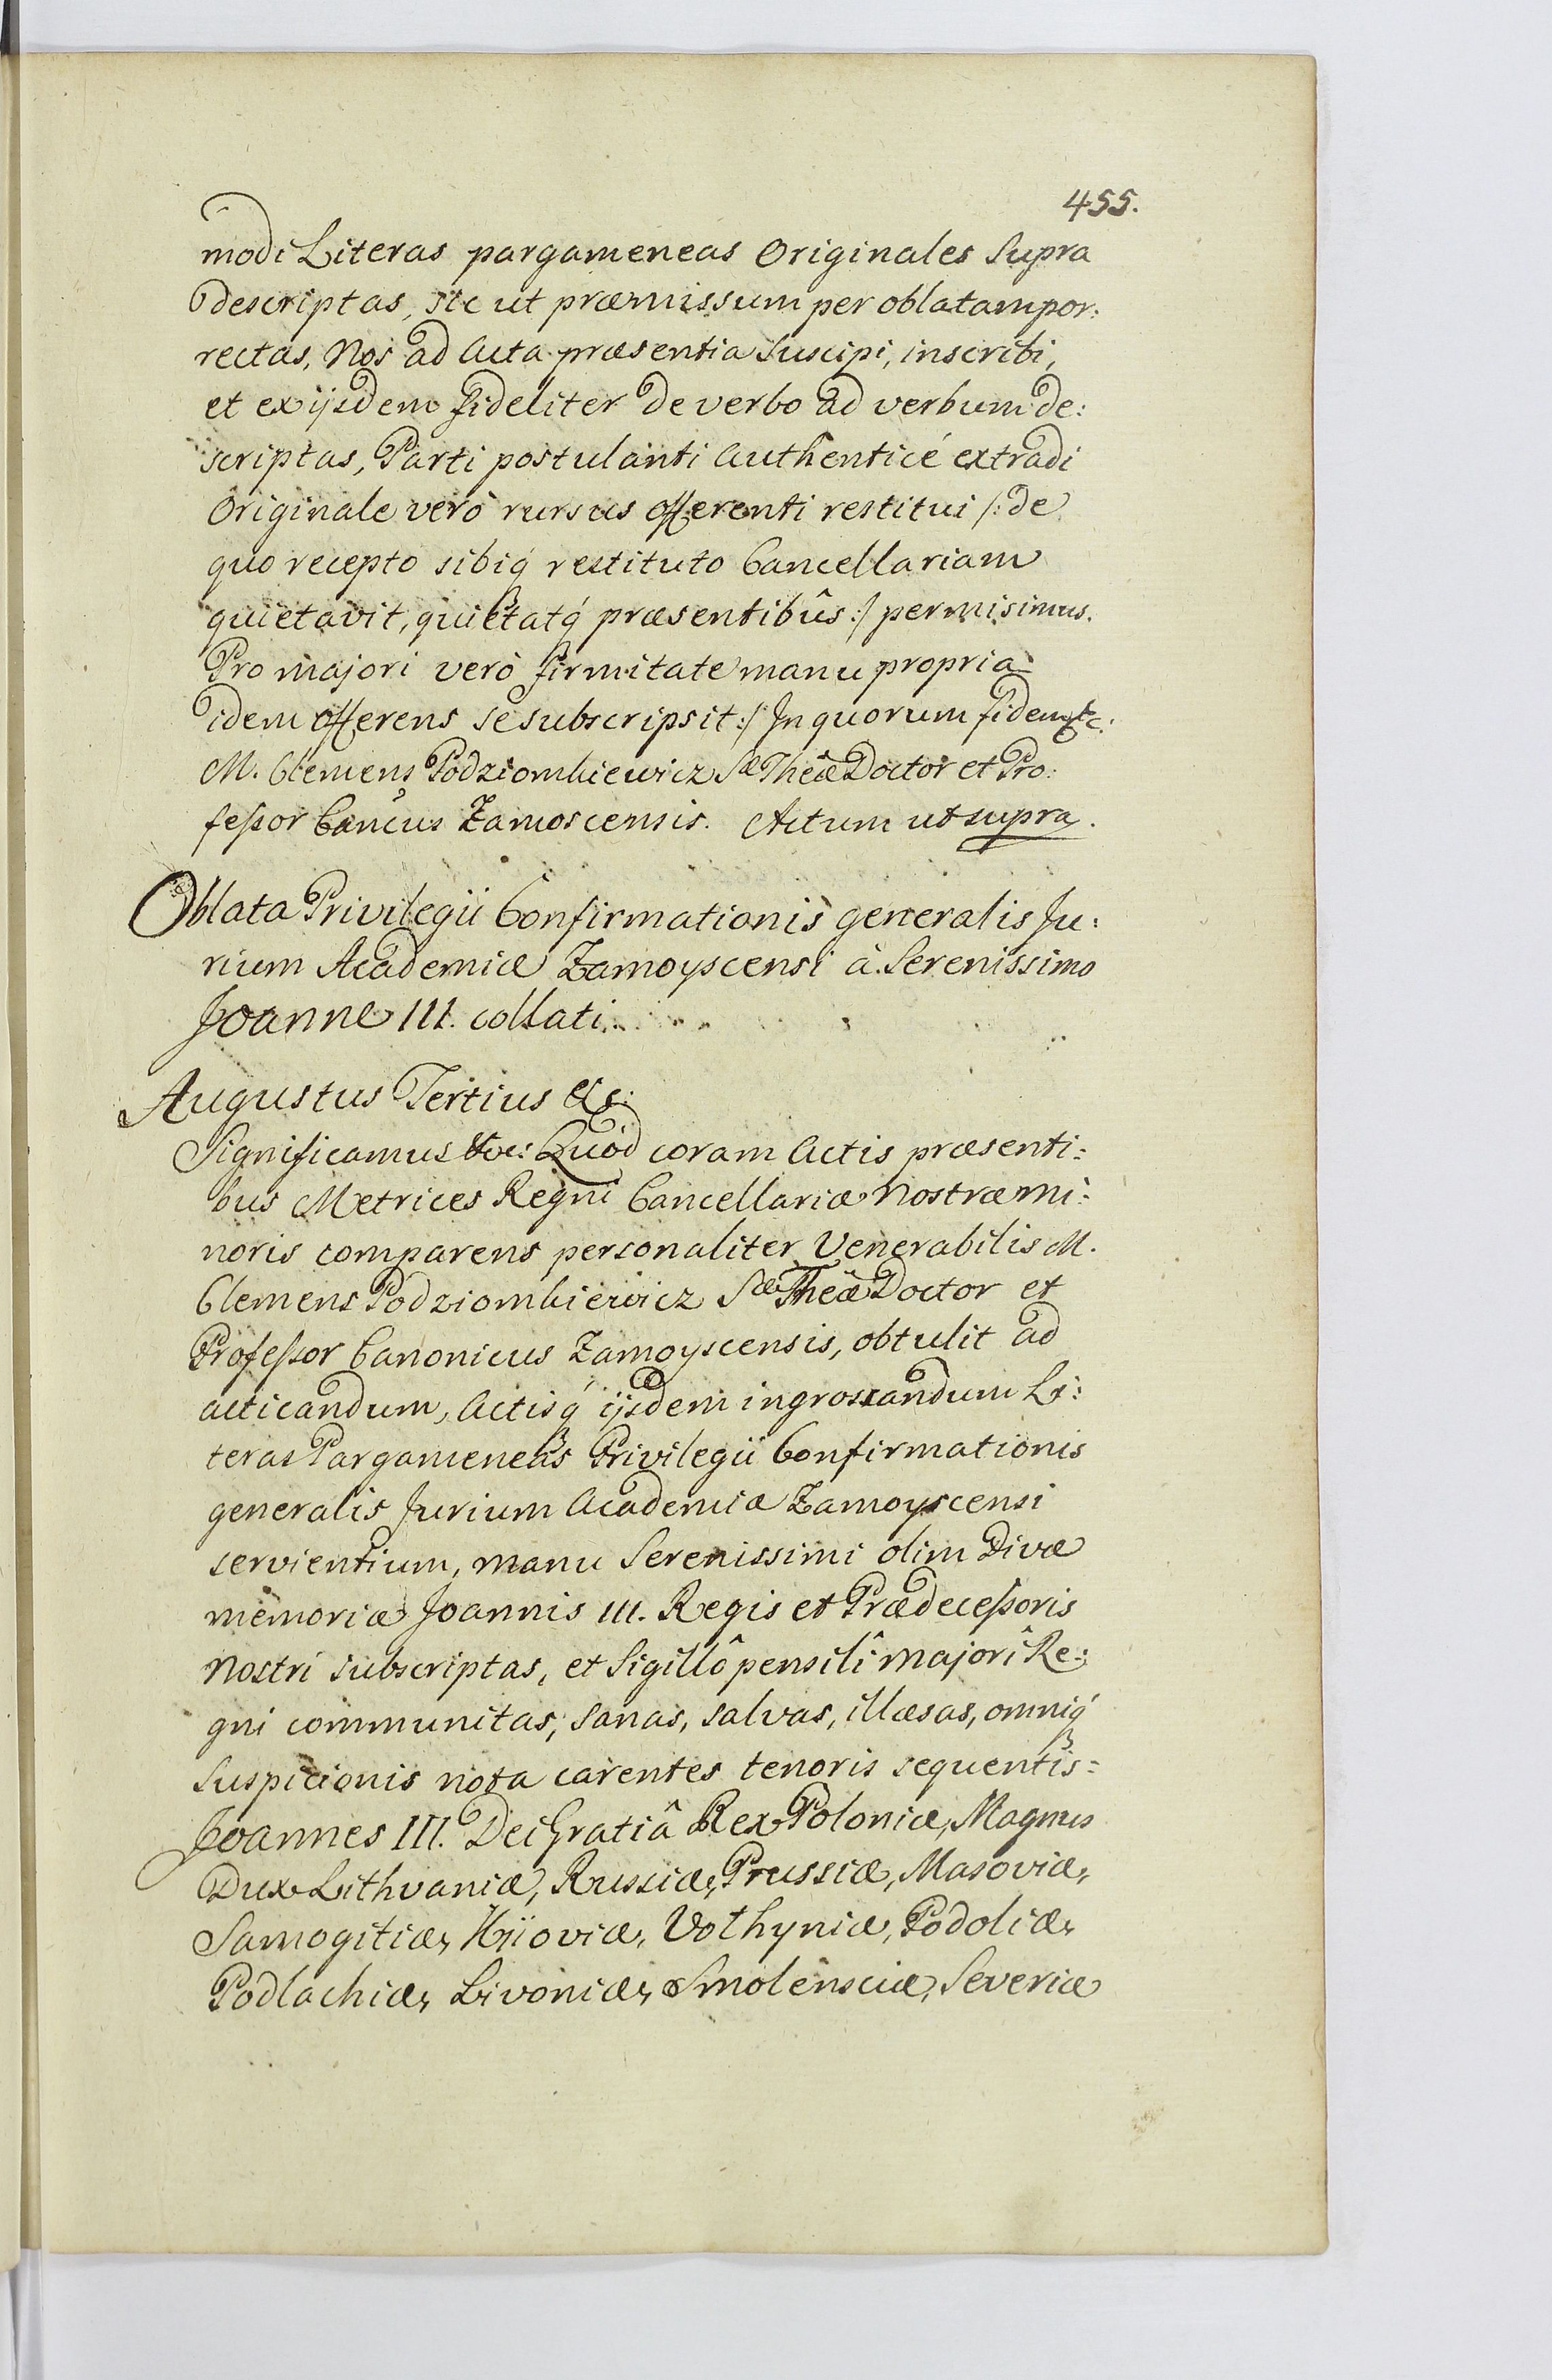 455.
modi Literas pargameneas Originales Supra
descriptas, sic ut præmissum per oblatam por:
rectas, Nos ad Acta præsentia Suscipi, inscribi,
et ex ijsdem fideliter de verbo ad verbum de:
scriptas, Parti postulanti Authenticé extradi
Originale verò rursus offerenti restitui /: de
quo recepto sibiq́ restituto Cancellariam
quietavit, quietatq́ præsentibûs :/ permisimus.
Pro majori verò firmitate manu propria
idem offerens se subscripsit :/ In quorum fidem &c.
M. Clemens Podziomkiewicz Sæ Theæ Doctor et Pro:
feßor Cancus Zamoscensis. Actum ut supra.
Oblata Privilegii Confirmationis generalis Ju:
rium Academiæ Zamoyscensi à Serenissimo
Joanne III. collati.
Augustus Tertius &c:
Significamus &c: Quod coram Actis præsenti:
bus Metrices Regni Cancellariæ Nostræ mi:
noris comparens personaliter Venerabilis M.
Clemens Podziomkiewicz Sæ Theæ Doctor et
Profeßor Canonicus Zamoyscensis, obtulit ad
acticandum, Actisq́ ijsdem ingrossandum Li:
teras Pargameneas Privilegii Confirmationis
generalis Jurium Academiæ Zamoyscensi
servientium, manu Serenissimi olim Divæ
memoriæ Joannis III. Regis et Prædeceßoris
Nostri subscriptas, et Sigillô pensilî majorî Re:
gni communitas, sanas, salvas, illæsas, omniq́
Suspicionis nota carentes tenoris sequentis =
Joannes III. Dei Gratiâ Rex Poloniæ, Magnus
Dux Lithvaniæ, Russiæ, Prussiæ, Masoviæ,
Samogitiæ, Kijoviæ, Volhyniæ, Podoliæ,
Podlachiæ, Livoniæ, Smolensciæ, Severiæ